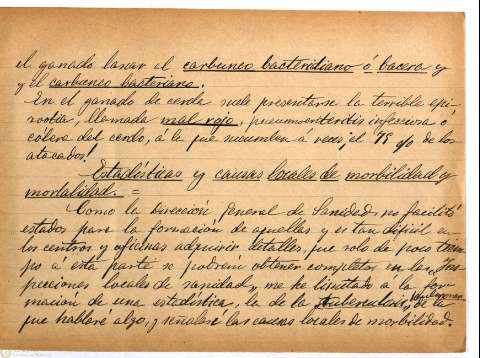 el ganado lanar el carbunco bacteridiano ó bacera y
y el carbunco bacteriano.
En el ganado de cerda suele presentarse la terrible epi-
zootia, llamada mal rojo, pneumoenteritis infecciosa ó
cólera del cerdo, á la que sucumben á veces, el 75 % de los
atacados!
Estadísticas y causas locales de morbilidad y
mortalidad. =
Como la Dirección General de Sanidad no facilitó
estados para la formación de aquellas y es tan difícil en
los centros y oficinas adquirir detalles, que solo de poco tiem-
po á esta parte se podrían obtener completos en las "Ins-
pecciones locales de sanidad", me he limitado á la for-
mación de una estadística, la de la tuberculosis pulmonar de la
que hablaré algo, y señalaré las causas locales de morbilidad.